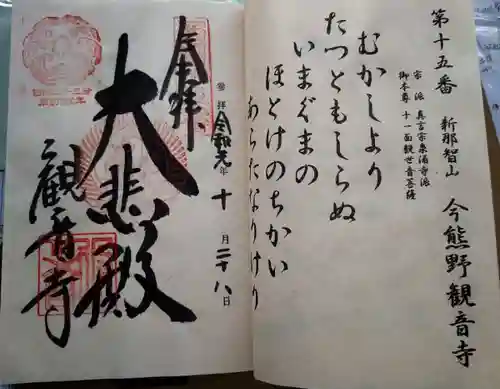 第十五番 新那智山 今熊野観音寺
宗派 真言宗泉涌寺派
御本尊 十一面観世音菩薩
むかしより
たつともしらぬ
いまぐまの
ほとけのちかい
あらたなりけり
奉拝
参拝 令和元年十月二十八日
大悲殿
観音寺